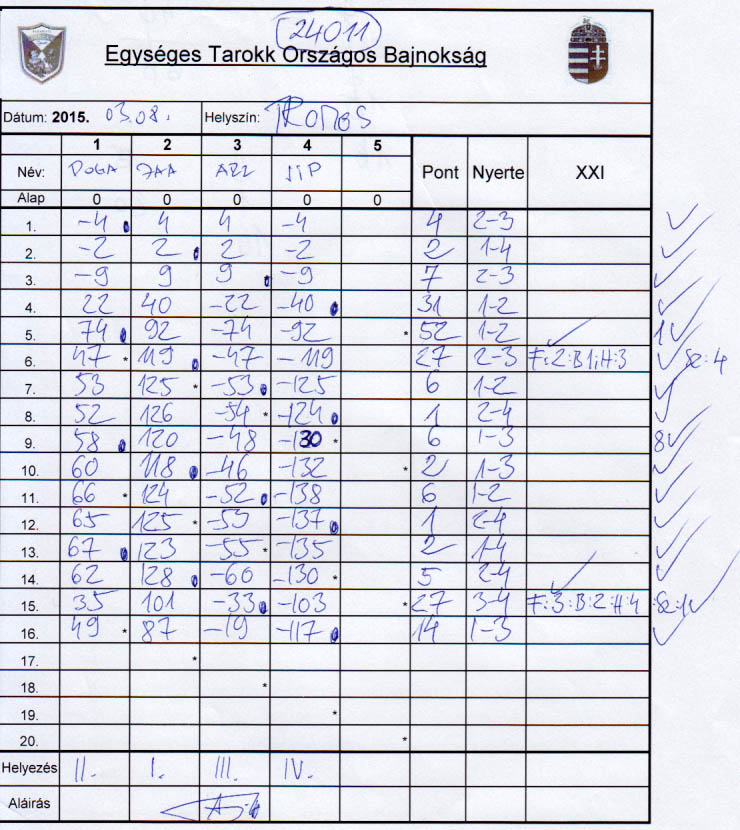 24011
Egységes Tarokk Országos Bajnokság
Dátum: 2015. 03.08. Helyszín: PROMOS
1 2 3 4 5
Név: DOGA JAA ARZ JIP Pont Nyerte XXI
Alap 0 0 0 0 0
1. -4 4 4 -4 4 2-3
2. -2 2 2 -2 2 1-4
3. -9 9 9 -9 7 2-3
4. 22 40 -22 -40 31 1-2
5. 74 92 -74 -92 * 52 1-2 1
6. 47 * 119 -47 -119 27 2-3 F:2:B1;H:3 Sz:4
7. 53 125 * -53 -125 6 1-2
8. 52 126 -54 * -124 1 2-4
9. 58 120 -48 -130 * 6 1-3 8
10. 60 118 -46 -132 * 2 1-3
11. 66 * 124 -52 -138 6 1-2
12. 65 125 * -53 -137 1 2-4
13. 67 123 -55 * -135 2 1-4
14. 62 128 -60 -130 * 5 2-4
15. 35 101 -33 -103 * 27 3-4 F:3:B:2:H:4 :Sz:1
16. 49 * 87 -19 -117 14 1-3
17. *
18. *
19. *
20. *
Helyezés II. I. III. IV.
Aláírás